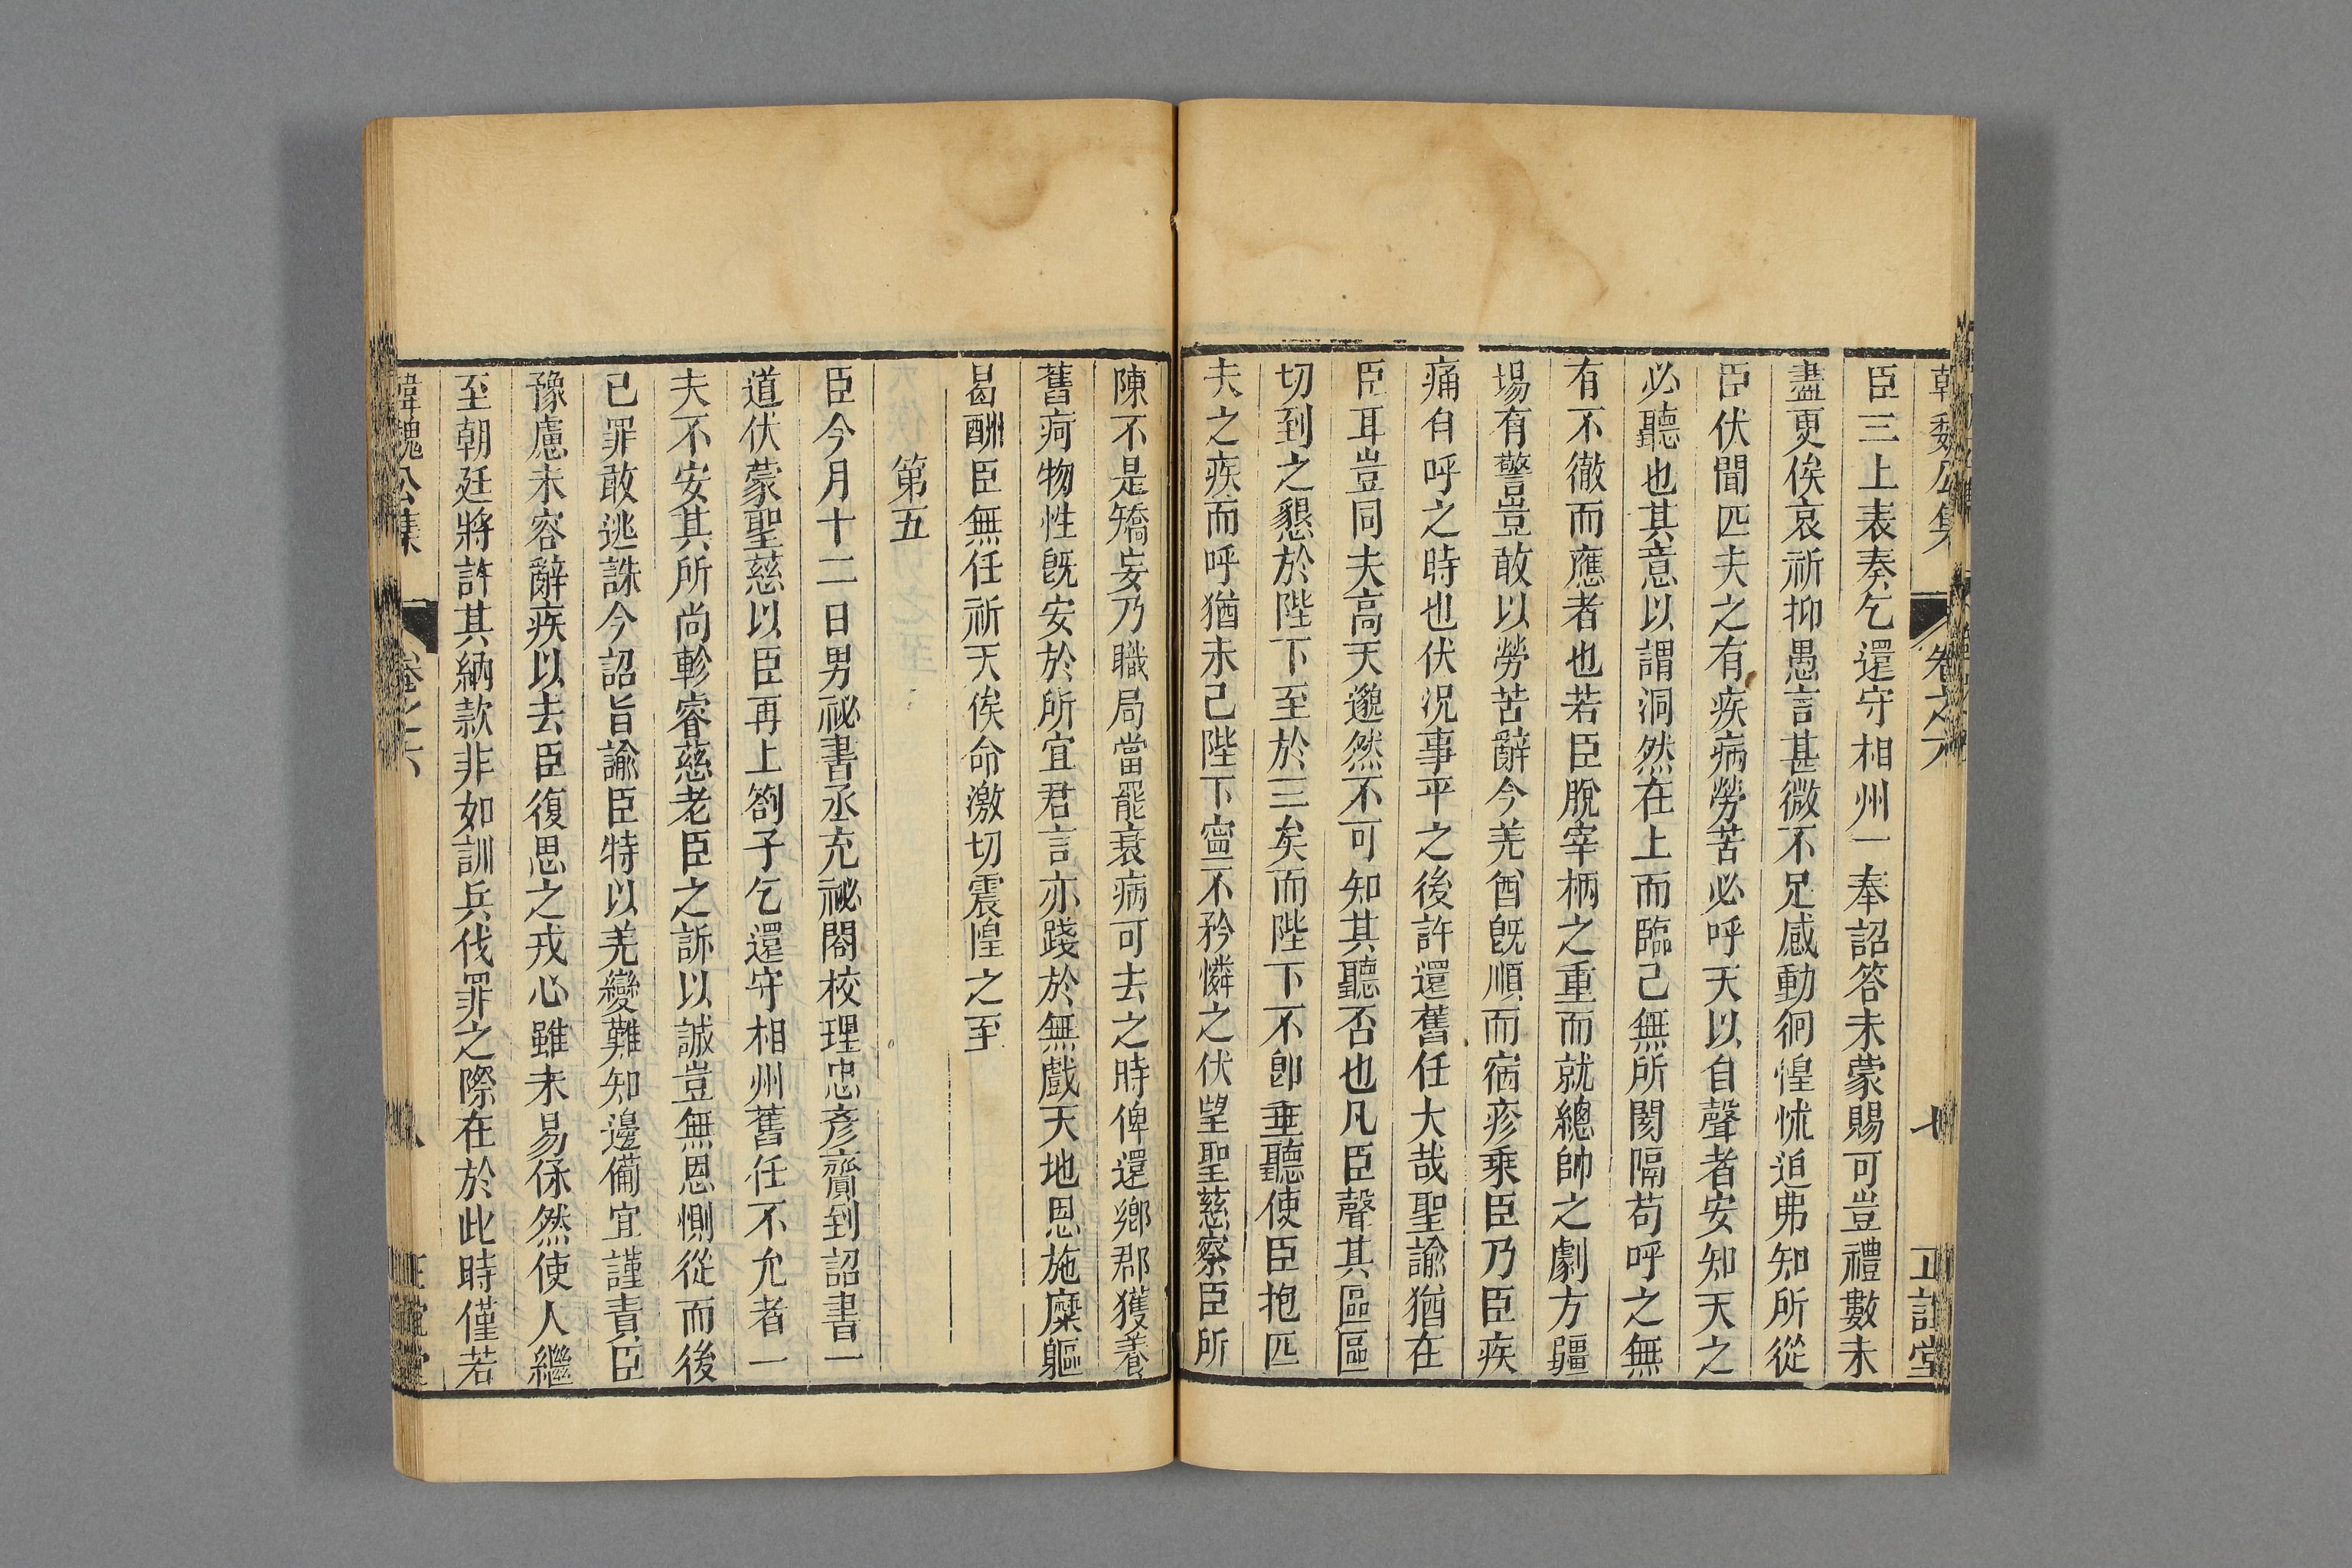 韓魏公集 卷之六 七 正誼堂
臣三上表奏乞還守相州一奉詔答未蒙賜可豈禮數未
盡更俟哀祈抑愚言甚微不足感動徊惶怵迫弗知所從
臣伏聞匹夫之有疾病勞苦必呼天以自聲者安知天之
必聽也其意以謂洞然在上而臨己無所閡隔苟呼之無
有不徹而應者也若臣脫宰柄之重而就總帥之劇方疆
場有警豈敢以勞苦辭今羌酋旣順而宿疹乗臣乃臣疾
痛自呼之時也伏況事平之後許還舊任大哉聖諭猶在
臣耳豈同夫高天邈然不可知其聽否也凡臣聲其區區
切到之懇於陛下至於三矣而陛下不卽垂聽使臣抱匹
夫之疾而呼猶未已陛下寧不矜憐之伏望聖慈察臣所
陳不是矯妄乃職局當罷衰病可去之時俾還鄉郡獲養
舊疴物性旣安於所宜君言亦踐於無戲天地恩施糜軀
曷酬臣無任祈天俟命激切震惶之至
第五
臣今月十二日男祕書丞充祕閣校理忠彥齎到詔書一
道伏蒙聖慈以臣再上劄子乞還守相州舊任不允者一
夫不安其所尚軫睿慈老臣之訴以誠豈無恩惻從而後
已罪敢逃誅今詔旨諭臣特以羌變難知邊備宜謹責臣
豫慮未容辭疾以去臣復思之戎心雖未易保然使人繼
至朝廷將許其納款非如訓兵伐罪之際在於此時僅若
韓魏公集 卷之六 八 正誼堂